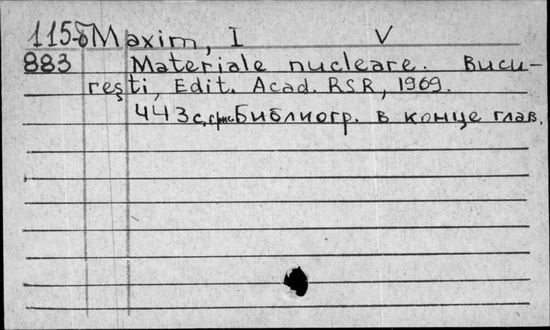 1158 Maxim, I V
883 Materiale nucleare. Bucu-
reşti, Edit. Acad. RSR, 1969.
443 с. Библиогр. в конце глав.